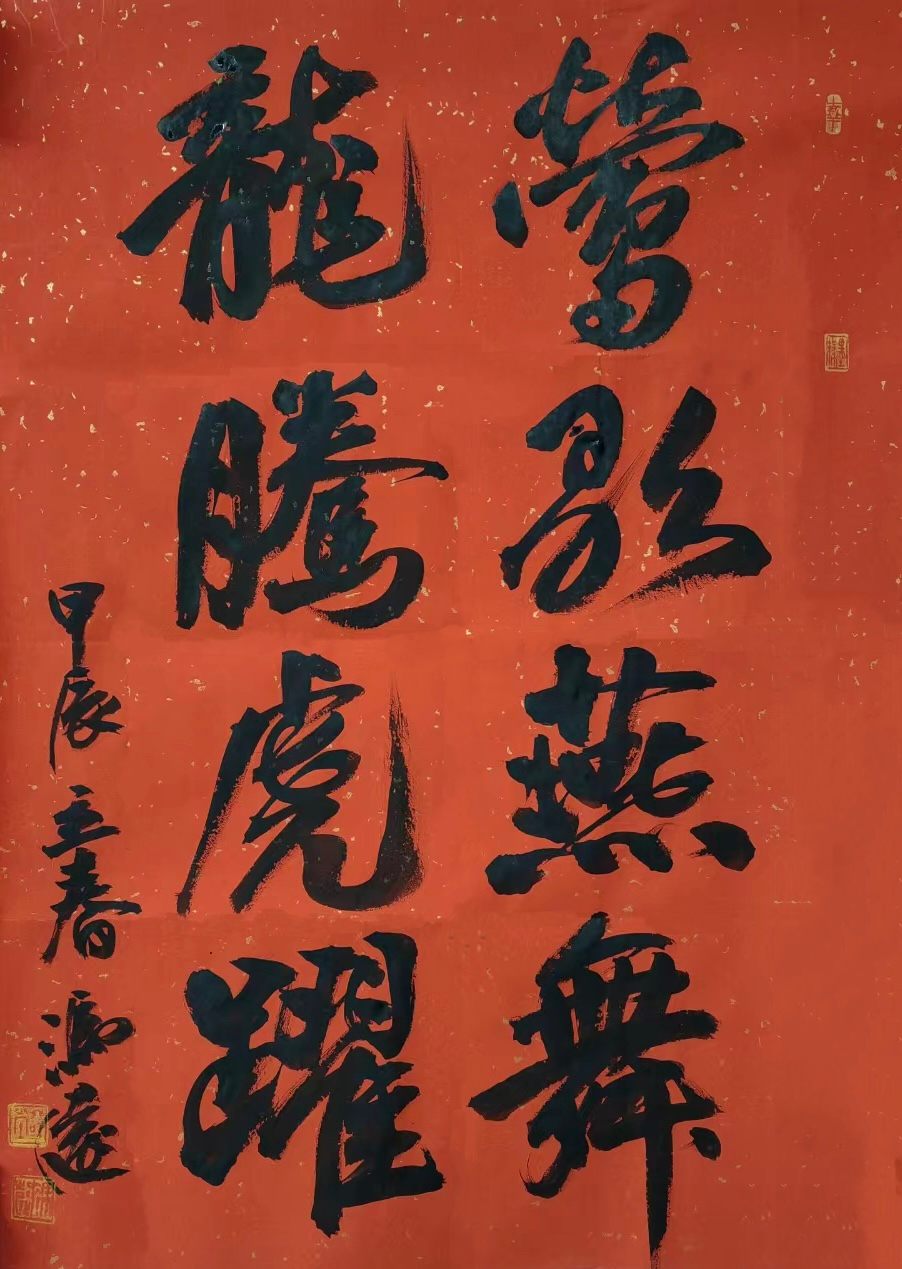 鶯歌燕舞
龍騰虎躍
甲辰立春馮遠